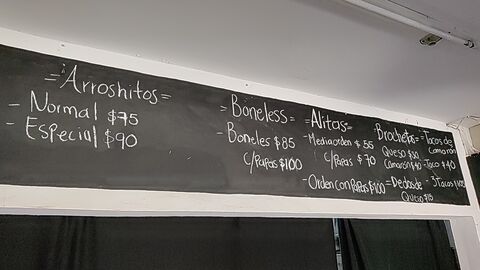 =Arroshitos=
- Normal $75
- Especial $90
=Boneless=
- Boneles $85
C/Papas $100
=Alitas=
- Media orden $55
C/Papas $70
- Orden con papas $100
Brochetas=
Queso
Camarón
=Dedos de
Queso
=Tacos de
Camarón
-Taco $40
-3Tacos